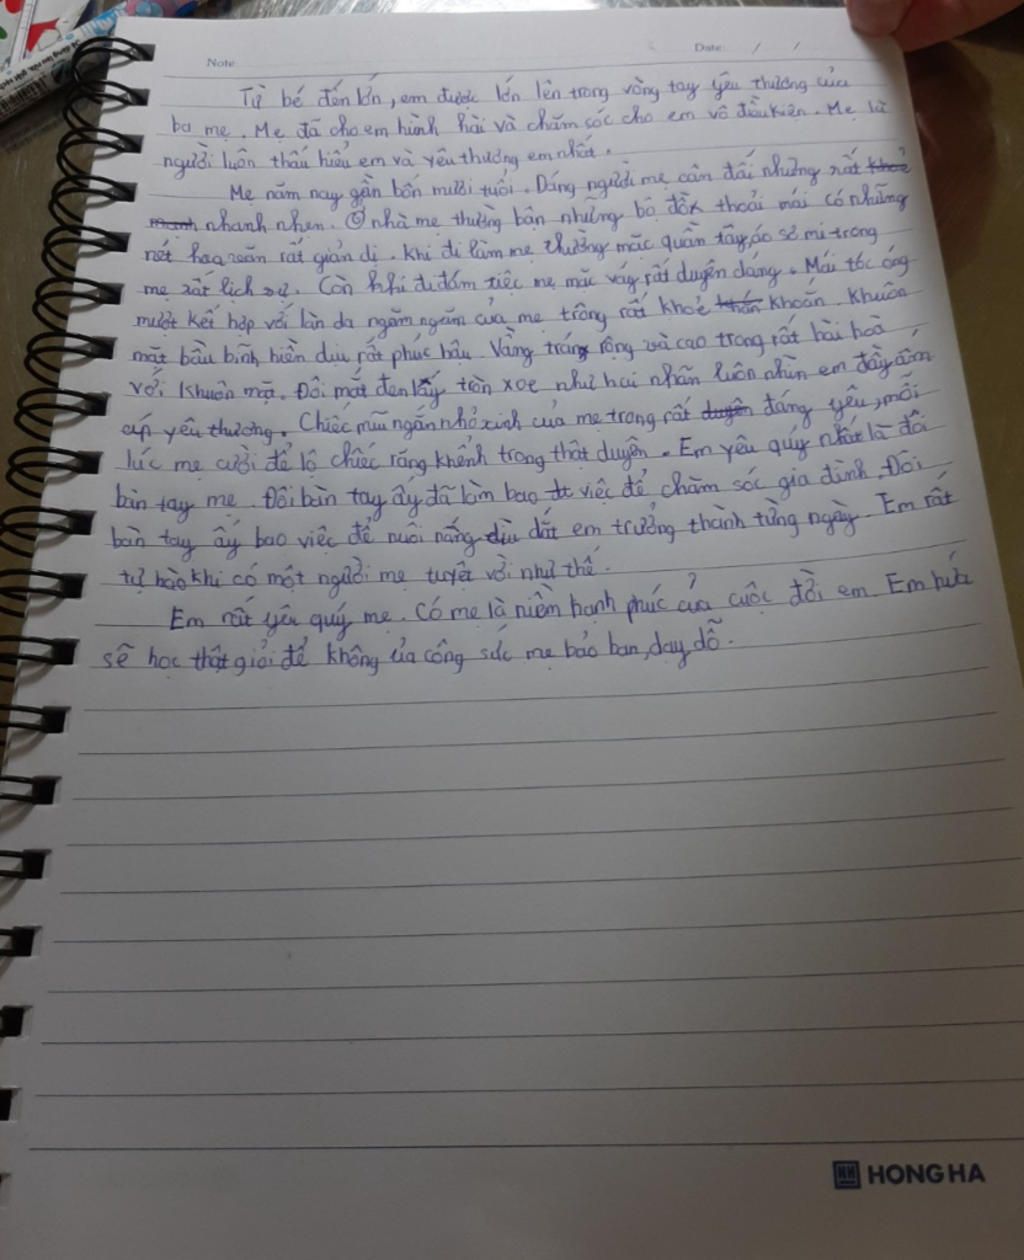 Note
Date: / /
Từ bé đến lớn, em được lớn lên trong vòng tay yêu thương của
ba mẹ. Mẹ đã cho em hình hài và chăm sóc cho em vô điều kiện. Mẹ là
người luôn thấu hiểu em và yêu thương em nhất.
Mẹ năm nay gần bốn mươi tuổi. Dáng người mẹ cân đối nhưng rất khoẻ
mạnh nhanh nhẹn. Ở nhà mẹ thường bận những bộ đồ thoải mái có những
nét hoa văn rất giản dị. Khi đi làm mẹ thường mặc quần tây, áo sơ mi trong
mẹ rất lịch sự. Còn khi đi đám tiệc mẹ mặc váy rất duyên dáng. Mái tóc óng
mượt kết hợp với làn da ngăm ngăm của mẹ trông rất khoẻ khoắn. Khuôn
mặt bầu bĩnh, hiền dịu rất phúc hậu. Vầng trán rộng và cao trong rất hài hoà
với khuôn mặ. Đôi mắt đen láy tròn xoe như hai nhãn luôn nhìn em đầy ấm
áp yêu thương. Chiếc mũi ngắn nhỏ xinh của mẹ trong rất duyên đáng yêu, mỗi
lúc mẹ cười để lộ chiếc răng khểnh trong thật duyên. Em yêu quý nhất là đôi
bàn tay mẹ. Đôi bàn tay ấy đã làm bao việc để chăm sóc gia đình. Đôi
bàn tay ấy bao việc để nuôi nấng dìu dắt em trưởng thành từng ngày. Em rất
tự hào khi có một người mẹ tuyệt vời như thế.
Em rất yêu quý mẹ. Có mẹ là niềm hạnh phúc của cuộc đời em. Em hứa
sẽ học thật giỏi để không ủa công sức mẹ bảo ban, dạy dỗ.
HONG HA